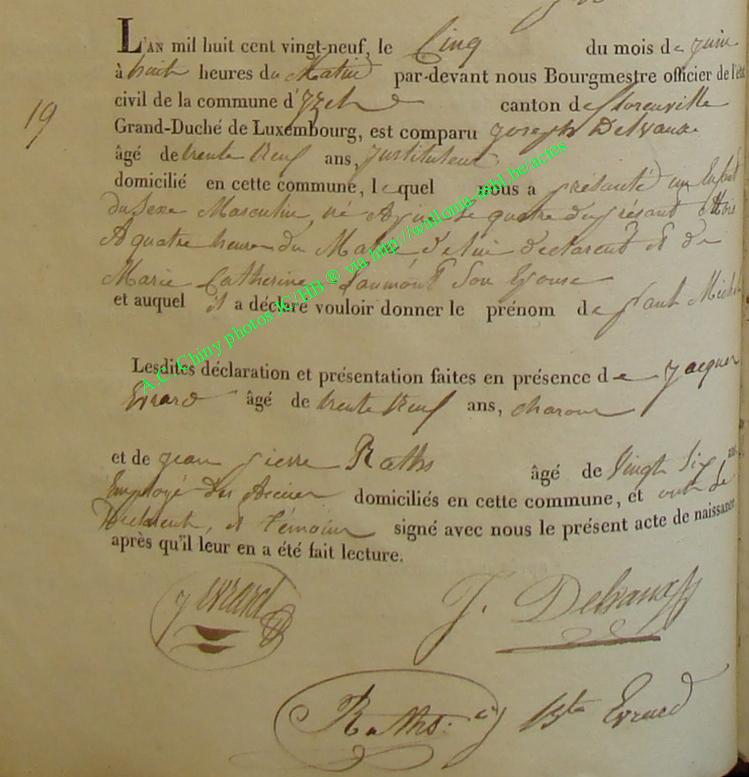 L'AN mil huit cent vingt-neuf, le Cinq du mois de Juin
à huit heures du Matin par-devant nous Bourgmestre officier de l'état
civil de la commune d'Izel canton de florenville
19
Grand-Duché de Luxembourg, est comparu Joseph Delvaux
âgé de trente Neuf ans, Instituteur
domicilié en cette commune, lequel nous a présenté un Enfant
du Sexe Masculin, né le quatre du présent Mois
A quatre heures du Matin de lui declarent et de
Marie Catherine Son Epouse
et auquel il a déclaré vouloir donner le prénom de Paul Michel
A.C. Chiny photos JC/HB ® via http://wallonia-asbl.be/actes
Lesdites déclaration et présentation faites en présence de Jacques
Evrard âgé de trente Neuf ans, charon
et de jean pierre Raths âgé de Vingt Six ans
Employé des Accises domiciliés en cette commune, et ont le
Declarent, et témoins signé avec nous le présent acte de naissance
après qu'il leur en a été fait lecture.
J Evrard
J. Delvaux
Raths
Bte Evrard